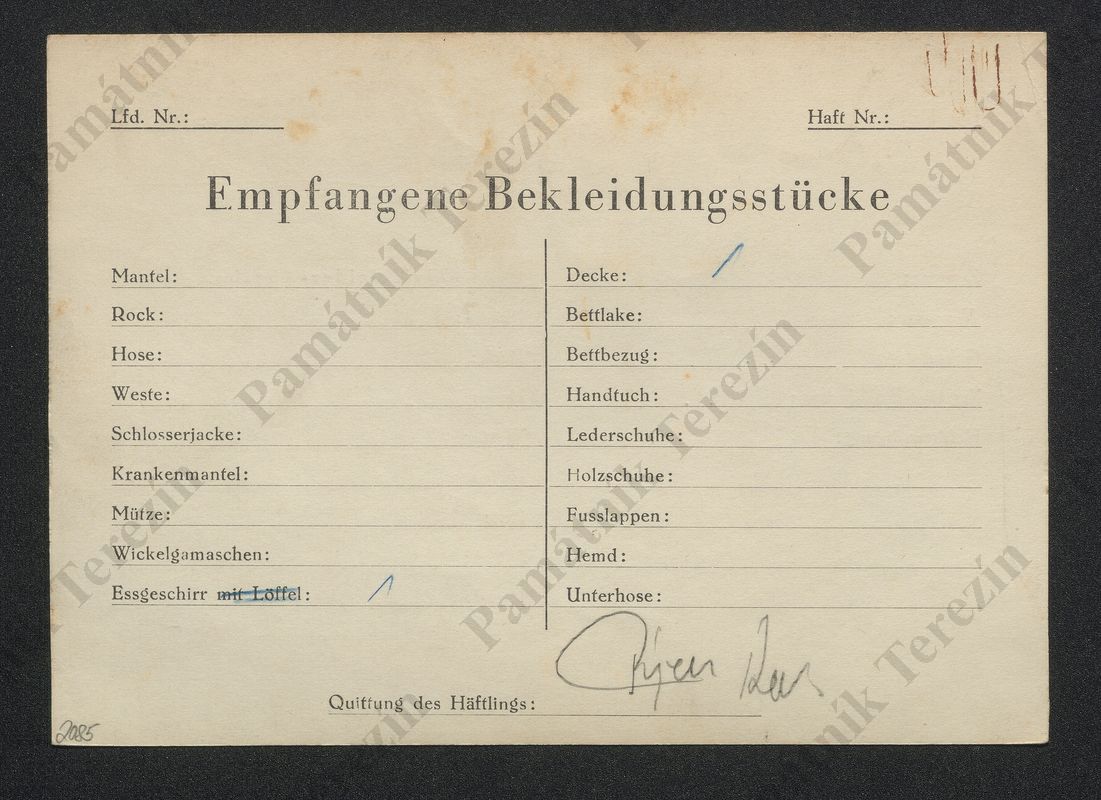 Lfd. Nr.:
Haft Nr.:
Empfangene Bekleidungsstücke
Mantel:
Rock:
Hose:
Weste:
Schlosserjacke:
Krankenmantel:
Mütze:
Wickelgamaschen:
Essgeschirr mit Löffel: 1
Decke: 1
Bettlake:
Bettbezug:
Handtuch:
Lederschuhe:
Holzschuhe:
Fusslappen:
Hemd:
Unterhose:
Quittung des Häftlings:
2085
Památník Terezín
Památník Terezín
Památník Terezín
Památník Terezín